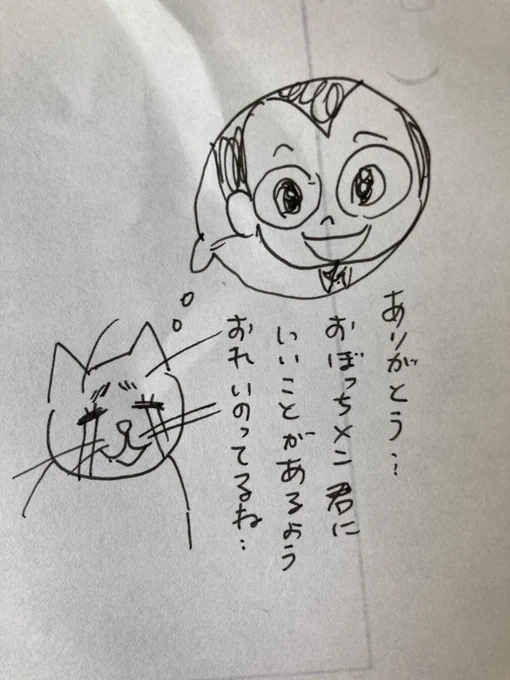 ありがとう…
おぼっちメン君に
いいことがあるよう
おれいのってるね…